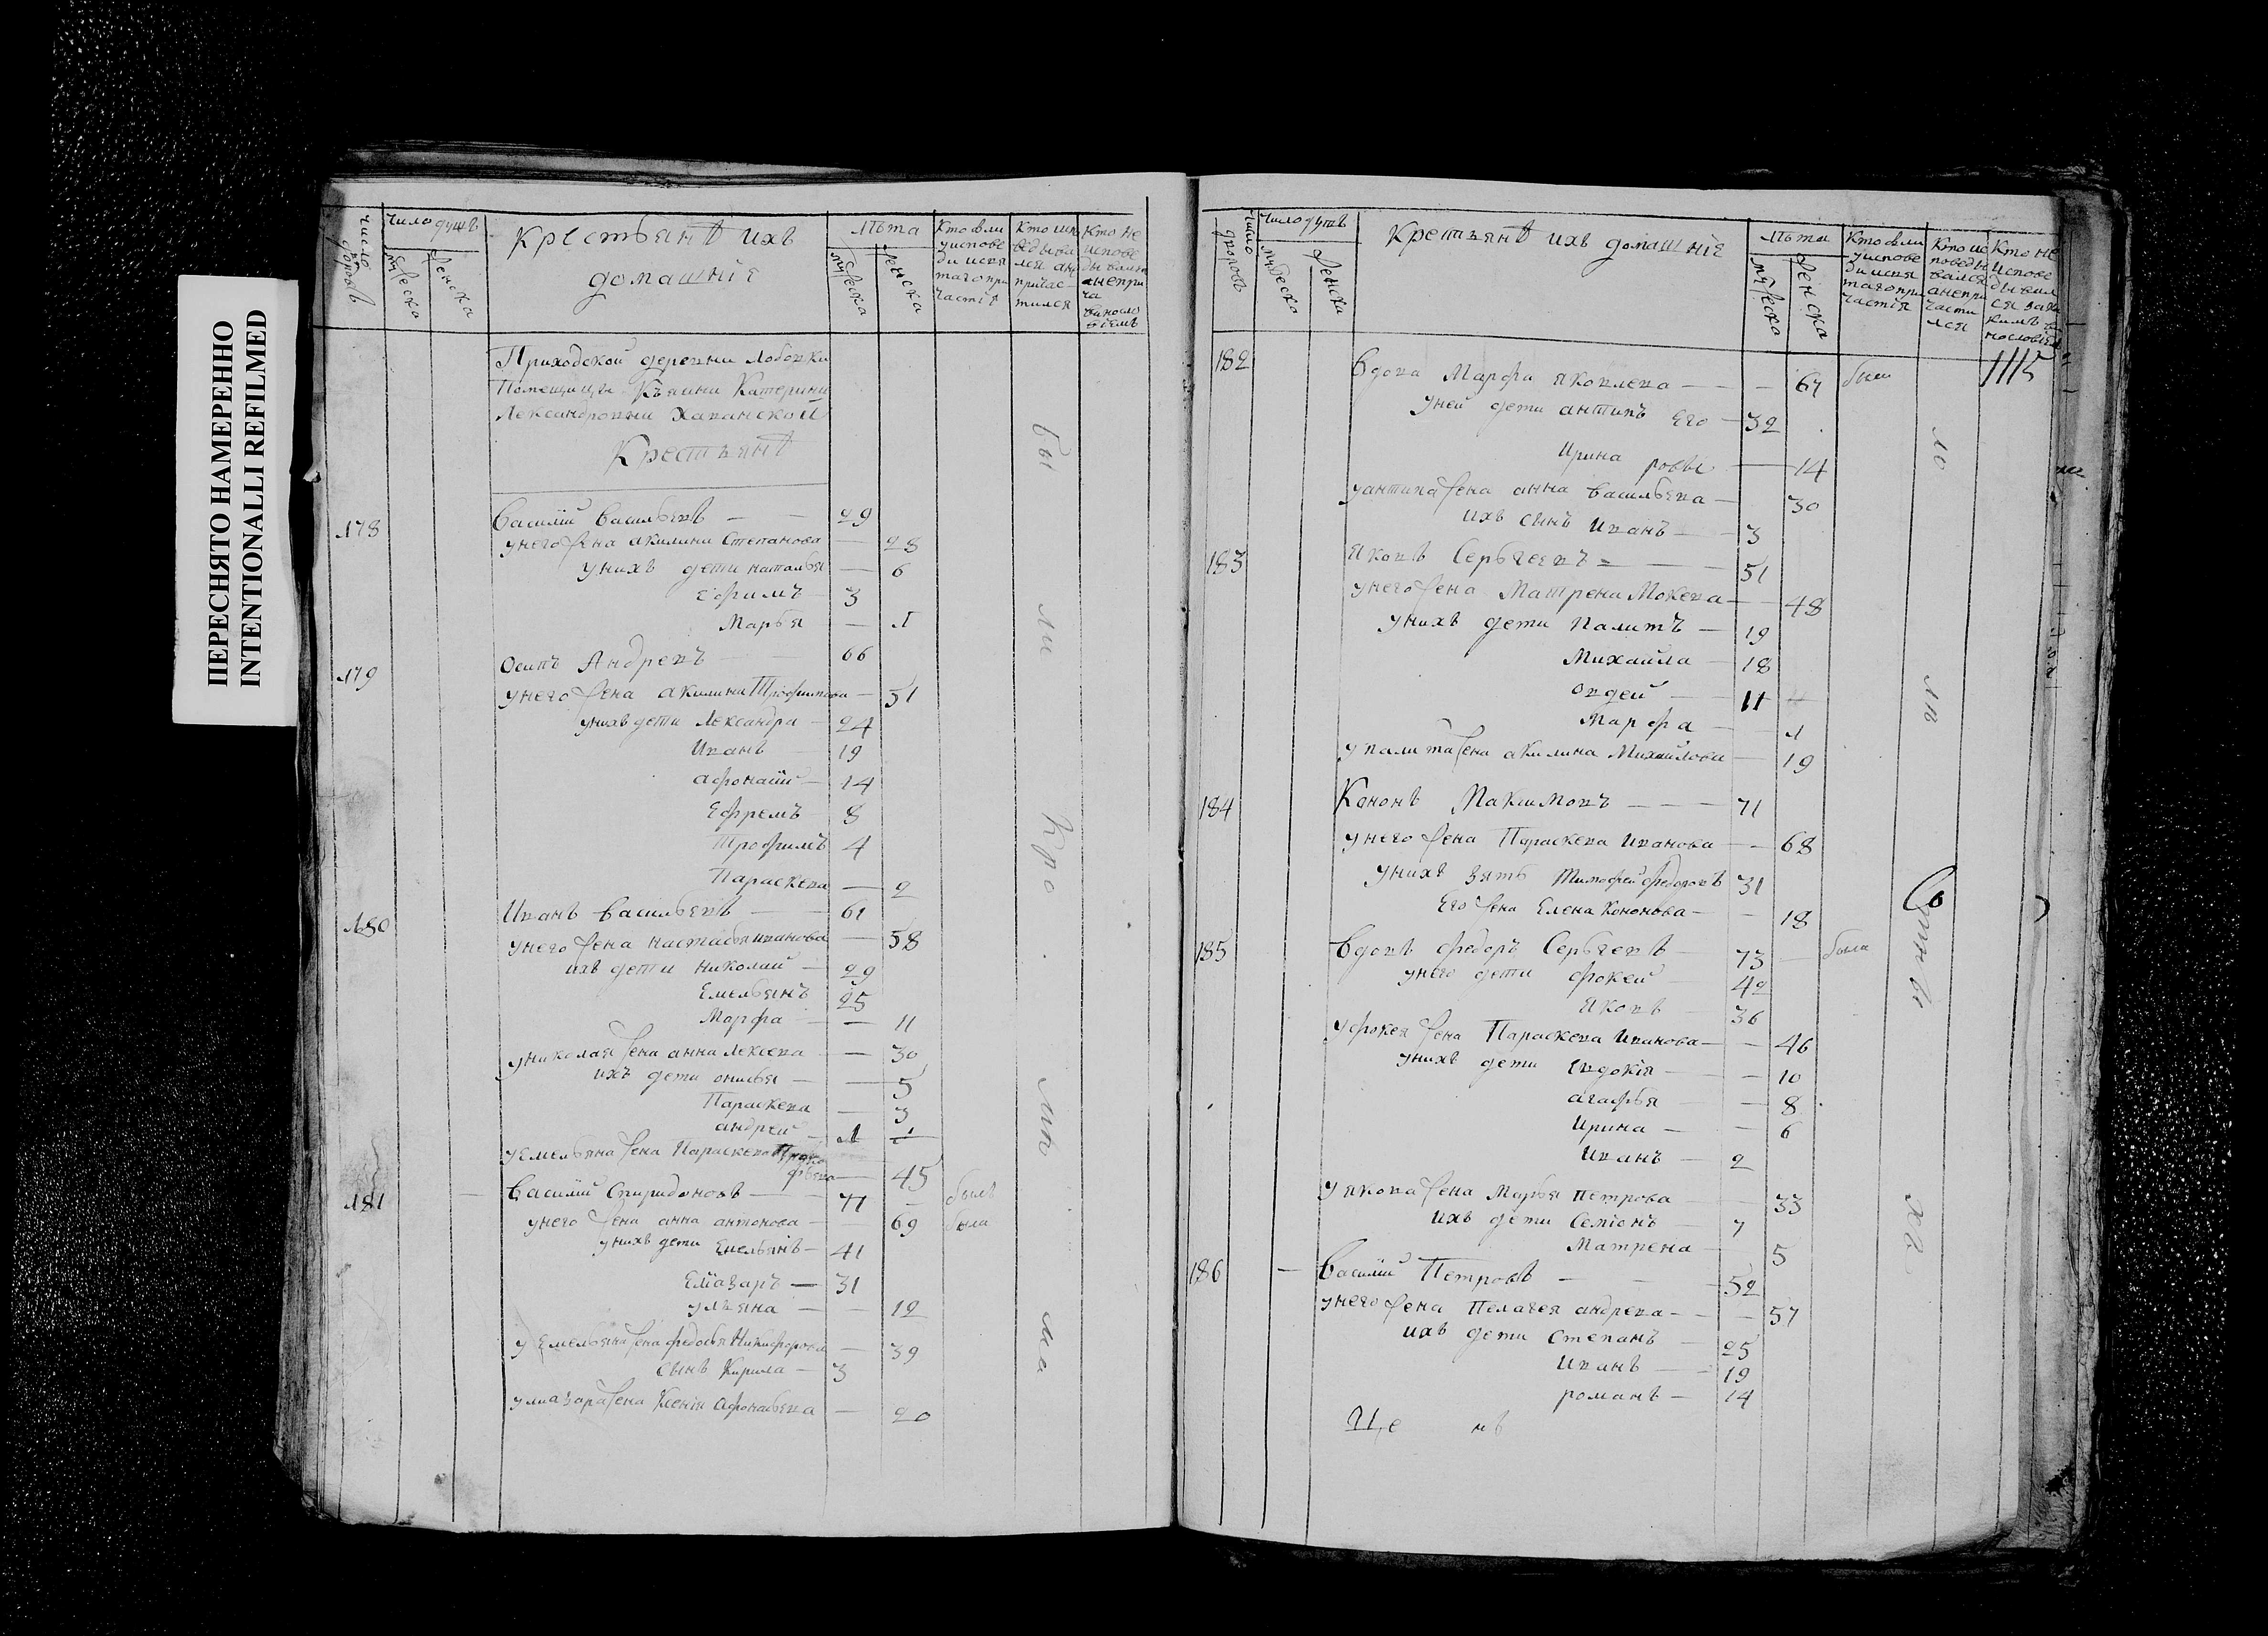 ПЕРЕСНЯТО НАМЕРЕННО
INTENTIONALLI REFILMED
число дворовъ
число душъ
мужеска
женска
Крестьянѣ ихъ
домашнiе
лѣта
мужеска
женска
Приходской деревни Лобовки
Помещицы Княини Катерины
Лександровны Хаванской
Крестьянѣ
178 Василiй Васильевъ — 29
унего жена акилина Степанова — 28
унихъ дети наталья — 6
Ефимъ 3
Марья — 1
179 Осипъ Андревъ 66
унего жена акилина Трофимова — 51
унихъ дети Лександра — 24
Иванъ 19
афонасiй — 14
Ефремъ 8
Трофимъ 4
Параскева — 2
180 Иванъ Васильевъ — 61
унего жена настасья иванова — 58
ихъ дети николай — 29
Емельянъ 25
Марфа — 11
униколая жена анна Лексеева — 30
ихъ дети — 5
Параскева — 3
андрей — 1
уемельяна жена Параскева Проко
фьева — 45
181 — Василiй Спиридоновъ — 77 — былъ
унего жена анна антонова — 69 была
унихъ дети Емельянъ — 41
Елiазаръ — 31
ульяна — 12
уЕмельяна жена федосья Никифорова — 39
сынъ Кирила — 3
улиазара жена Ксенiя Афонасьева — 20
число дворовъ
число душъ
мужеска
женска
Крестьянѣ ихъ домашнiе
лѣта
мужеска
женска
1115
182 Вдова Марфа яковлева — 67 была
уней дети антипъ Его — 32
Ирина — 14
уантипа жена анна Васильева — 30
ихъ сынъ Иванъ — 3
183 Яковъ Сергѣевъ — 51
унего жена Матрена Мокева — 48
унихъ дети Палитъ — 19
Михайла — 18
овдей — 11
Марфа — 1
упалита жена акилина Михайлова — 19
184 Кононъ Максимовъ — 71
унего жена Параскева иванова — 68
унихъ зять Тимофей федоровъ 31
Его жена Елена Кононова — 18
185 Вдовъ федоръ Сергѣевъ — 73 — была
унего дети фокей — 42
Яковъ — 36
уфокея жена Параскева Иванова — 46
унихъ дети Евдокiя — 10
агафья — 8
Ирина — 6
Иванъ — 2
уякова жена Марья петрова 33
ихъ дети Семiонъ — 7
Матрена — 5
186 — Василiй Петровъ — 52
унего жена Пелагея андрева — 57
ихъ дети Степанъ — 25
Иванъ — 19
романъ — 14